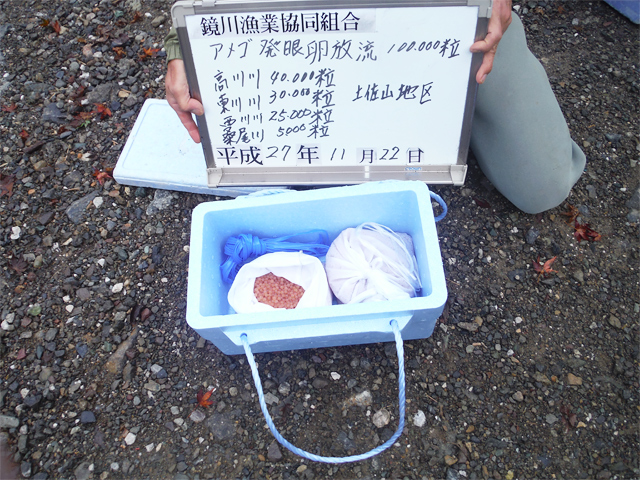 鏡川漁業協同組合
アメゴ発眼卵放流 100.000粒
高川川 40.000粒
東川川 30.000粒 土佐山地区
西川川 25.000粒
桑尾川 5000粒
平成27年11月22日